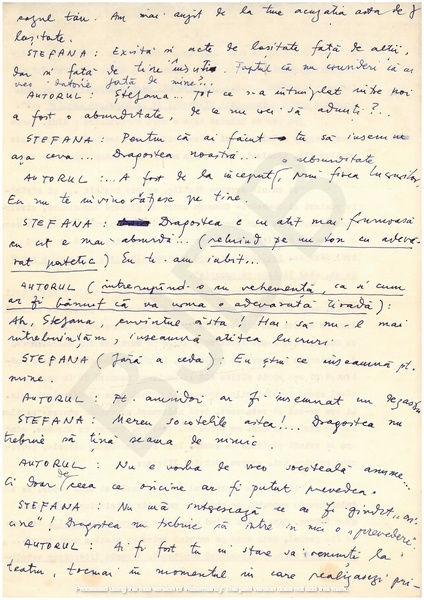 rogul tău. Am mai auzit de la tine acuzația asta de
lașitate.
STEFANA: Există și acte de lașitate față de alții,
dar și față de tine însuți. Faptul că nu consideri că ai
vreo datorie față de mine?..
AUTORUL: Ștefana... Tot ce s-a întîmplat între noi
a fost o absurditate, de ce nu vrei să admiți?...
STEFANA: Pentru că ai făcut tu să însemne
așa ceva... Dragostea noastră...
AUTORUL: ...A fost de la început o absurditate, prin firea lucrurilor.
Eu nu te învinovățesc pe tine.
STEFANA: Dragostea e cu atît mai frumoasă
cu cît e mai absurdă... (reluînd pe un ton cu adevă-
rat patetic) Eu te-am iubit...
AUTORUL (întrerupînd-o cu vehemență, ca și cum
ar fi bănuit că va urma o adevărată tiradă):
Ah, Stefana, cuvîntul ăsta! Hai să nu-l mai
întrebuințăm, înseamnă atîtea lucruri
STEFANA (fără a ceda): Eu știu ce înseamnă pt.
mine.
AUTORUL: Pt. amîndoi ar fi însemnat un
STEFANA: Mereu socotelile astea!... Dragostea nu
trebuie să țină seama de nimic.
AUTORUL: Nu e vorba de vreo socoteală anume...
Ci doar de ceea ce oricine ar fi putut prevedea.
STEFANA: Nu mă interesează ce ar fi gîndit "ori-
cine"! Dragostea nu trebuie să intre în nici o "prevedere".
AUTORUL: Ai fi fost tu în stare să renunți la
teatru, tocmai în momentul în care realizai pri-
BJDS